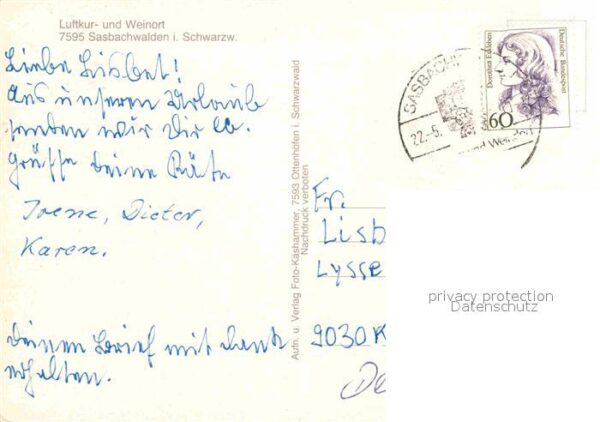 Luftkur- und Weinort
7595 Sasbachwalden i. Schwarzw.
Liebe Lisbet!
Aus unseren Urlaub
senden wir Dir lb.
Grüsse Deine Käte
Irene, Dieter,
Karen.
Deinen Brief mit Dank
erhalten.
Aufn. u. Verlag Foto-Käshammer, 7593 Ottenhöfen i. Schwarzwald
Nachdruck verboten
SASBACHW
22.-5.
und Weinort
Dorothea Erxleben
Deutsche Bundespost
60
Fr.
Lisb
Lysse
9030 K
De
privacy protection
Datenschutz